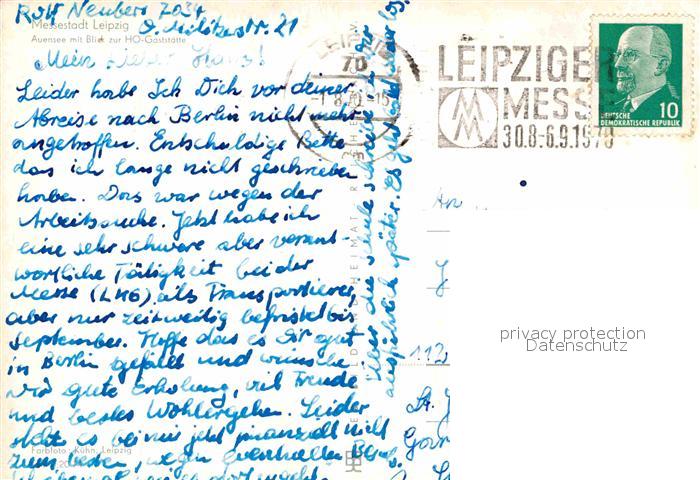 Rolf Neubert 7034
Messestadt Leipzig
Auensee mit Blick zur HO-Gaststätte
Mein lieber
Leider habe Ich Dich vor deiner
Abreise nach Berlin nicht mehr
angetroffen. Entschuldige Bitte
das ich lange nicht geschrieben
haben. Das war wegen der
Arbeitssuche. Jetzt habe ich
eine sehr schwere aber verant-
wortliche Tätigkeit bei der
Messe als Transportierer,
aber nur zeitweilig befristet bis
September. Hoffe das es Dir gut
in Berlin gefällt und wünsche
Dir gute Erholung, viel Freude
und bestes Wohlergehen. Leider
steht es bei mir jetzt finanziell nicht
zum besten, wegen eventuellen
Farbfoto: Kühn, Leipzig
Über die schreibe ich Dir
ausführlich später. Es
LEIPZIG
70
LEIPZIGER
MESSE
30.8.-6.9.1970
DEUTSCHE
DEMOKRATISCHE REPUBLIK
10
An
112
privacy protection
Datenschutz